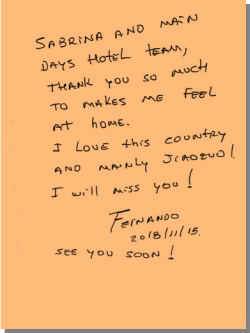 SABRINA AND MAIN
DAYS HOTEL TEAM,
THANK YOU SO MUCH
TO MAKES ME FEEL
AT HOME.
I LOVE this COUNTRY
AND MAINLY JIAOZUO!
I will miss you!
FERNANDO
2018/11/15.
SEE YOU SOON!